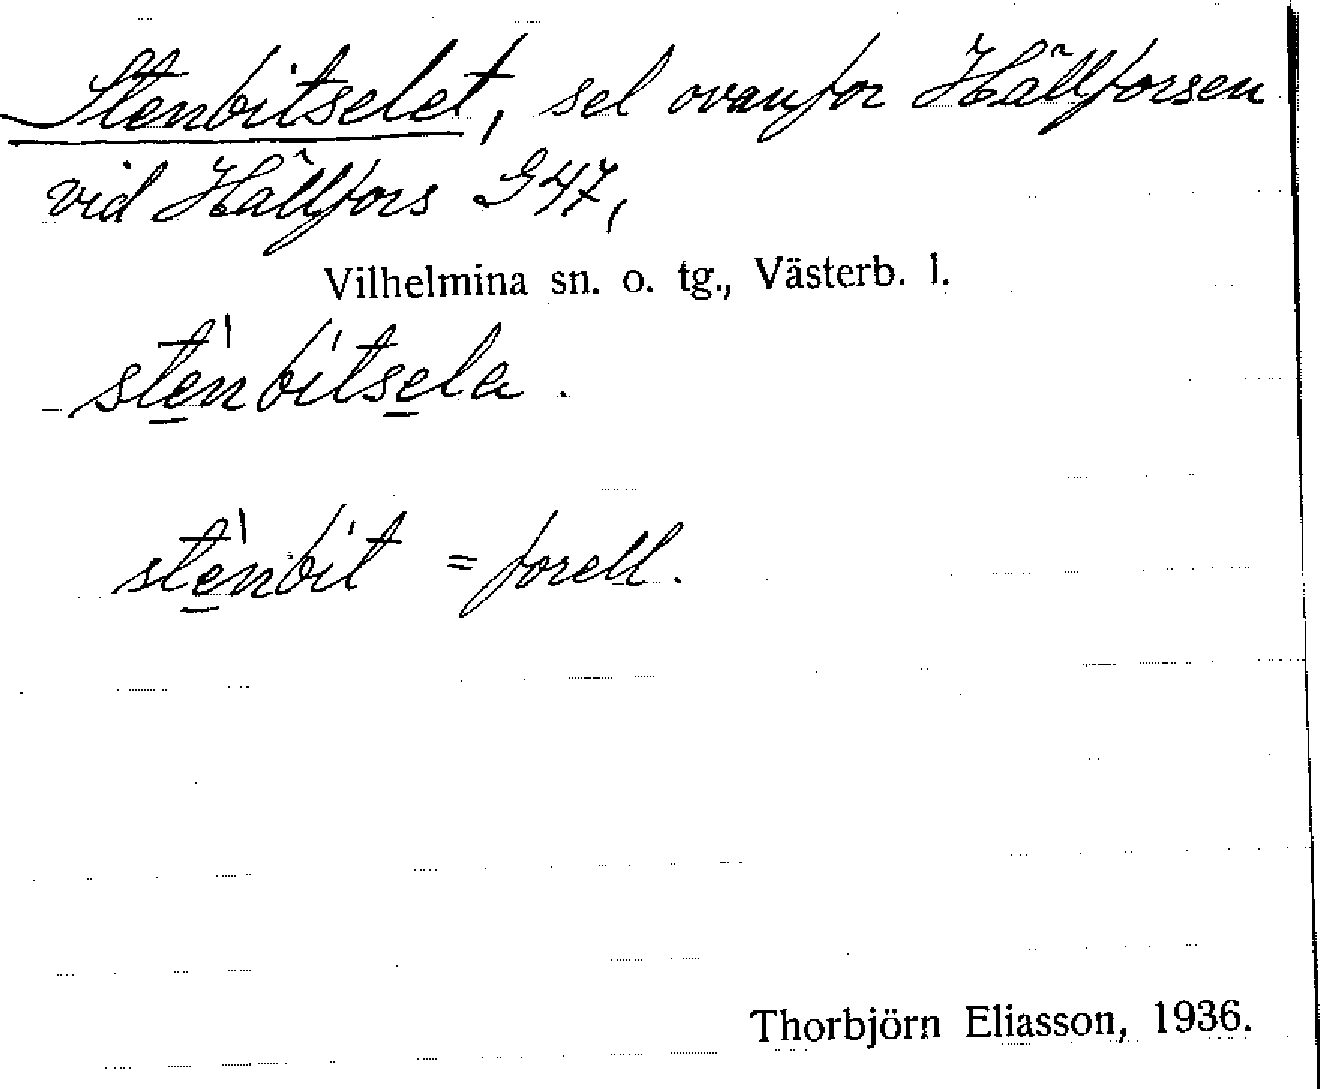 Stenbitselet, sel ovanför Hällforsen
vid Hällfors G 47,
Vilhelmina sn. o. tg., Västerb. l.
ste̲ˈnbi´tse̲la.
ste̲ˈnbi´t = forell.
Thorbjörn Eliasson, 1936.